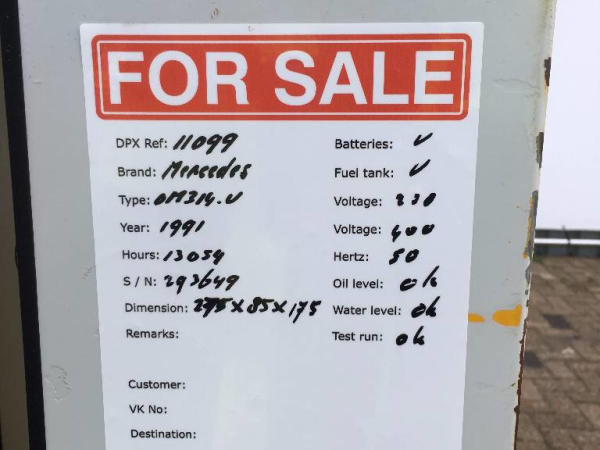 FOR SALE
DPX Ref: 11099
Brand: Mercedes
Type: OM314.U
Year: 1991
Hours: 13054
S / N: 293649
Dimension: 275x85x175
Remarks:
Customer:
VK No:
Destination:
Batteries: v
Fuel tank: v
Voltage: 230
Voltage: 400
Hertz: 50
Oil level: ok
Water level: ok
Test run: ok